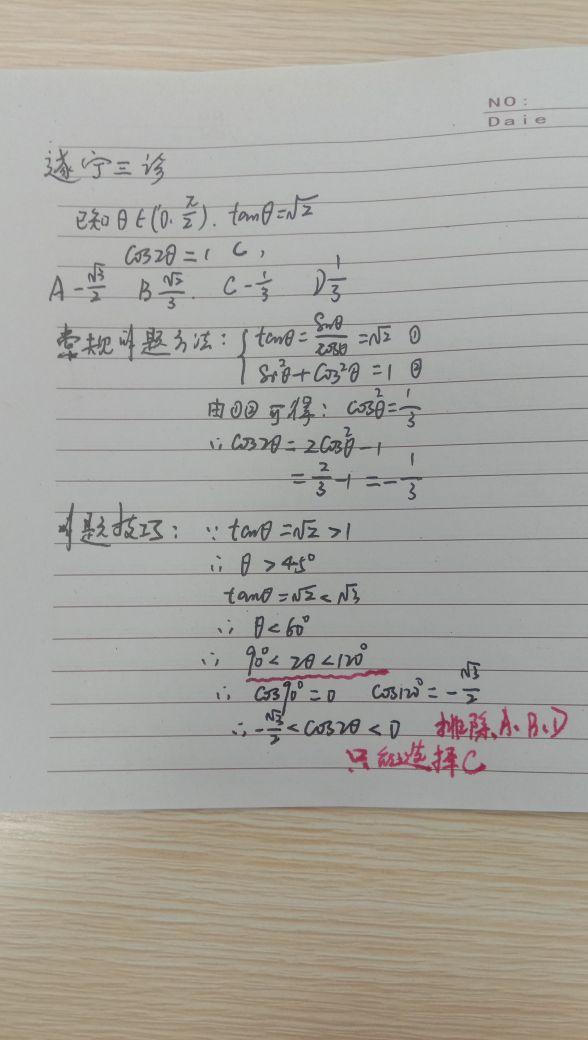 NO:
Daie
遂宁三诊
已知θ∈(0,π/2). tanθ=√2
cos2θ=( C )
A -√3/2 B √2/3. C -1/3 D 1/3
常规解题方法: { tanθ=sinθ/cosθ=√2 ①
sin²θ+cos²θ=1 ②
由①②可得: cos²θ=1/3
∴cos2θ=2cos²θ-1
=2/3-1=-1/3
解题技巧: ∵ tanθ=√2>1
∴ θ>45°
tanθ=√2<√3
∴ θ<60°
∴ 90°<2θ<120°
∴ cos90°=0 cos120°=-√3/2
∴-√3/2<cos2θ<0 排除A、B、D
只能选择C